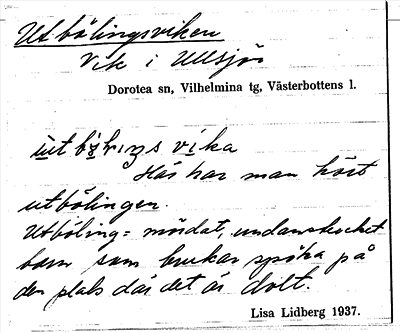 Utbölingsviken
Vik i Ullsjön
Dorotea sn, Vilhelmina tg, Västerbottens l.
vika
Här har man hört
utbölingen.
Utböling = mördat, undanstucket
barn som brukar spöka på
den plats där det är dolt.
Lisa Lidberg 1937.